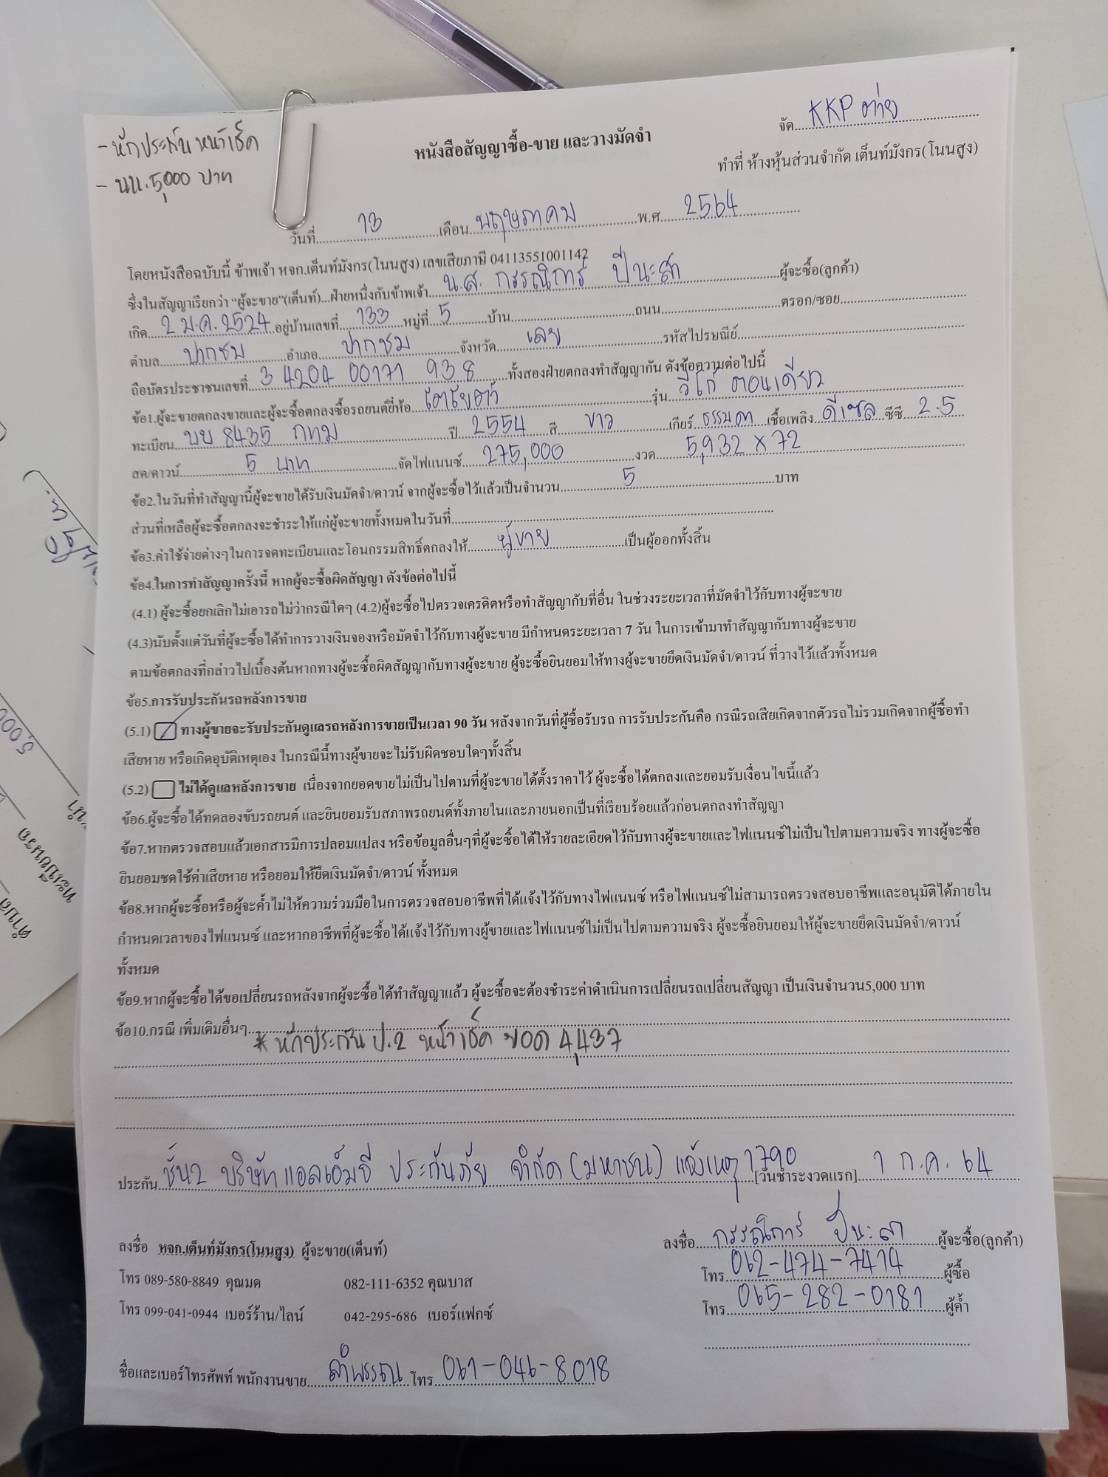 - หักประกัน หน้าเช็ค
- นน. 5,000 บาท
จัด KKP ต่าย
หนังสือสัญญาซื้อ-ขาย และวางมัดจำ
ทำที่ ห้างหุ้นส่วนจำกัด เต็นท์มังกร(โนนสูง)
วันที่ 13 เดือน พฤษภาคม พ.ศ. 2564
โดยหนังสือฉบับนี้ ข้าพเจ้า หจก.เต็นท์มังกร(โนนสูง) เลขเสียภาษี 04113551001142
ซึ่งในสัญญาเรียกว่า "ผู้จะขาย"(เต็นท์)...ฝ่ายหนึ่งกับข้าพเจ้า น.ส. กรรณิการ์ ปีนะสา ผู้จะซื้อ(ลูกค้า)
เกิด 2 ม.ค. 2524 อยู่บ้านเลขที่ 133 หมู่ที่ 5 บ้าน ถนน ตรอก/ซอย
ตำบล ปากชม อำเภอ ปากชม จังหวัด เลย รหัสไปรษณีย์
ถือบัตรประชาชนเลขที่ 3 4204 00171 93 8 ทั้งสองฝ่ายตกลงทำสัญญากัน ดังข้อความต่อไปนี้
ข้อ1.ผู้จะขายตกลงขายและผู้จะซื้อตกลงซื้อรถยนต์ยี่ห้อ โตโยต้า รุ่น วีโก้ ตอนเดียว
ทะเบียน บบ 8435 กทม ปี 2554 สี ขาว เกียร์ ธรรมดา เชื้อเพลิง ดีเซล ซีซี 2.5
สด/ดาวน์ 5 บาท จัดไฟแนนซ์ 275,000 งวด 5,932 x 72
ข้อ2.ในวันที่ทำสัญญานี้ผู้จะขายได้รับเงินมัดจำ/ดาวน์ จากผู้จะซื้อไว้แล้วเป็นจำนวน 5 บาท
ส่วนที่เหลือผู้จะซื้อตกลงจะชำระให้แก่ผู้จะขายทั้งหมดในวันที่
ข้อ3.ค่าใช้จ่ายต่างๆในการจดทะเบียนและโอนกรรมสิทธิ์ตกลงให้ ผู้ขาย เป็นผู้ออกทั้งสิ้น
ข้อ4.ในการทำสัญญาครั้งนี้ หากผู้จะซื้อผิดสัญญา ดังข้อต่อไปนี้
(4.1) ผู้จะซื้อยกเลิกไม่เอารถไม่ว่ากรณีใดๆ (4.2)ผู้จะซื้อไปตรวจเครดิตหรือทำสัญญากับที่อื่น ในช่วงระยะเวลาที่มัดจำไว้กับทางผู้จะขาย
(4.3)นับตั้งแต่วันที่ผู้จะซื้อได้ทำการวางเงินจองหรือมัดจำไว้กับทางผู้จะขาย มีกำหนดระยะเวลา 7 วัน ในการเข้ามาทำสัญญากับทางผู้จะขาย
ตามข้อตกลงที่กล่าวไปเบื้องต้นหากทางผู้จะซื้อผิดสัญญากับทางผู้จะขาย ผู้จะซื้อยินยอมให้ทางผู้จะขายยึดเงินมัดจำ/ดาวน์ ที่วางไว้แล้วทั้งหมด
ข้อ5.การรับประกันรถหลังการขาย
(5.1) ทางผู้ขายจะรับประกันดูแลรถหลังการขายเป็นเวลา 90 วัน หลังจากวันที่ผู้ซื้อรับรถ การรับประกันคือ กรณีรถเสียเกิดจากตัวรถ ไม่รวมเกิดจากผู้ซื้อทำ
เสียหาย หรือเกิดอุบัติเหตุเอง ในกรณีนี้ทางผู้ขายจะไม่รับผิดชอบใดๆทั้งสิ้น
(5.2) ไม่ได้ดูแลหลังการขาย เนื่องจากยอดขายไม่เป็นไปตามที่ผู้จะขายได้ตั้งราคาไว้ ผู้จะซื้อได้ตกลงและยอมรับเงื่อนไขนี้แล้ว
ข้อ6.ผู้จะซื้อได้ทดลองขับรถยนต์ และยินยอมรับสภาพรถยนต์ทั้งภายในและภายนอกเป็นที่เรียบร้อยแล้วก่อนตกลงทำสัญญา
ข้อ7.หากตรวจสอบแล้วเอกสารมีการปลอมแปลง หรือข้อมูลอื่นๆที่ผู้จะซื้อได้ให้รายละเอียดไว้กับทางผู้จะขายและไฟแนนซ์ไม่เป็นไปตามความจริง ทางผู้จะซื้อ
ยินยอมชดใช้ค่าเสียหาย หรือยอมให้ยึดเงินมัดจำ/ดาวน์ ทั้งหมด
ข้อ8.หากผู้จะซื้อหรือผู้จะค้ำไม่ให้ความร่วมมือในการตรวจสอบอาชีพที่ได้แจ้งไว้กับทางไฟแนนซ์ หรือไฟแนนซ์ไม่สามารถตรวจสอบอาชีพและอนุมัติได้ภายใน
กำหนดเวลาของไฟแนนซ์ และหากอาชีพที่ผู้จะซื้อได้แจ้งไว้กับทางผู้ขายและไฟแนนซ์ไม่เป็นไปตามความจริง ผู้จะซื้อยินยอมให้ผู้จะขายยึดเงินมัดจำ/ดาวน์
ทั้งหมด
ข้อ9.หากผู้จะซื้อได้ขอเปลี่ยนรถหลังจากผู้จะซื้อได้ทำสัญญาแล้ว ผู้จะซื้อจะต้องชำระค่าดำเนินการเปลี่ยนรถเปลี่ยนสัญญา เป็นเงินจำนวน5,000 บาท
ข้อ10.กรณี เพิ่มเติมอื่นๆ
* หักประกัน ป.2 หน้าเช็ค ยอด 4,437
ประกัน ชั้น2 บริษัท แอลเอ็มจี ประกันภัย จำกัด (มหาชน) แจ้งเหตุ 1790 [วันชำระงวดแรก] 1 ก.ค. 64
ลงชื่อ หจก.เต็นท์มังกร(โนนสูง) ผู้จะขาย(เต็นท์) ลงชื่อ กรรณิการ์ ปีนะสา ผู้จะซื้อ(ลูกค้า)
โทร 089-580-8849 คุณมด 082-111-6352 คุณบาส โทร 062-474-7414 ผู้ซื้อ
โทร 099-041-0944 เบอร์ร้าน/ไลน์ 042-295-686 เบอร์แฟกซ์ โทร 065-282-0181 ผู้ค้ำ
ชื่อและเบอร์โทรศัพท์ พนักงานขาย ลำพรรณ โทร 061-046-8018